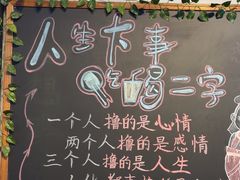 人生大事
吃喝二字
一个人撸的是心情
两个人撸的是感情
三个人撸的是人生